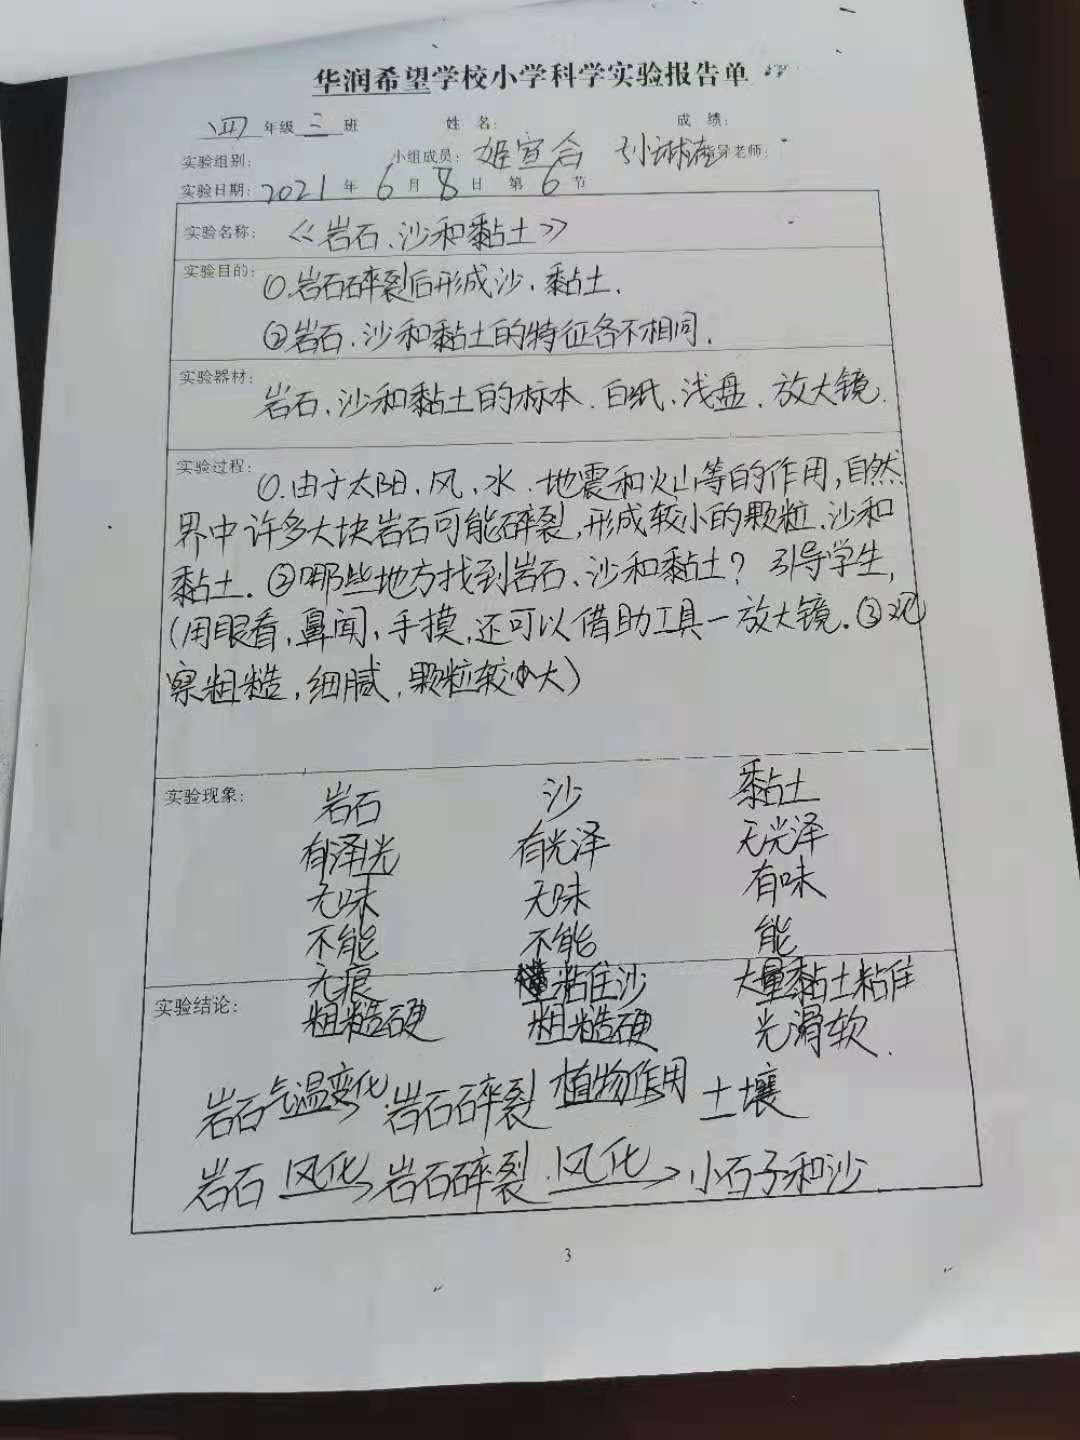 华润希望学校小学科学实验报告单
四 年级 三 班 姓 名: 成 绩:
实验组别: 小组成员: 姬宣合 孙琳 指导老师:
实验日期: 2021 年 6 月 8 日 第 6 节
实验名称: 《岩石、沙和黏土》
实验目的: ①.岩石碎裂后形成沙、黏土.
②岩石、沙和黏土的特征各不相同.
实验器材:
岩石、沙和黏土的标本、白纸、浅盘、放大镜.
实验过程: ①.由于太阳、风、水、地震和火山等的作用,自然
界中许多大块岩石可能碎裂,形成较小的颗粒、沙和
黏土. ②哪些地方找到岩石、沙和黏土? 引导学生,
(用眼看,鼻闻,手摸,还可以借助工具一放大镜.③观
察粗糙,细腻,颗粒较小大)
实验现象: 岩石 沙 黏土
有泽光 有光泽 无光泽
无味 无味 有味
不能 不能 能
无痕 粘住沙 大量黏土粘住
实验结论: 粗糙硬 粗糙硬 光滑软.
岩石 气温变化 岩石碎裂 植物作用 土壤
岩石 风化→ 岩石碎裂 风化→ 小石子和沙
3